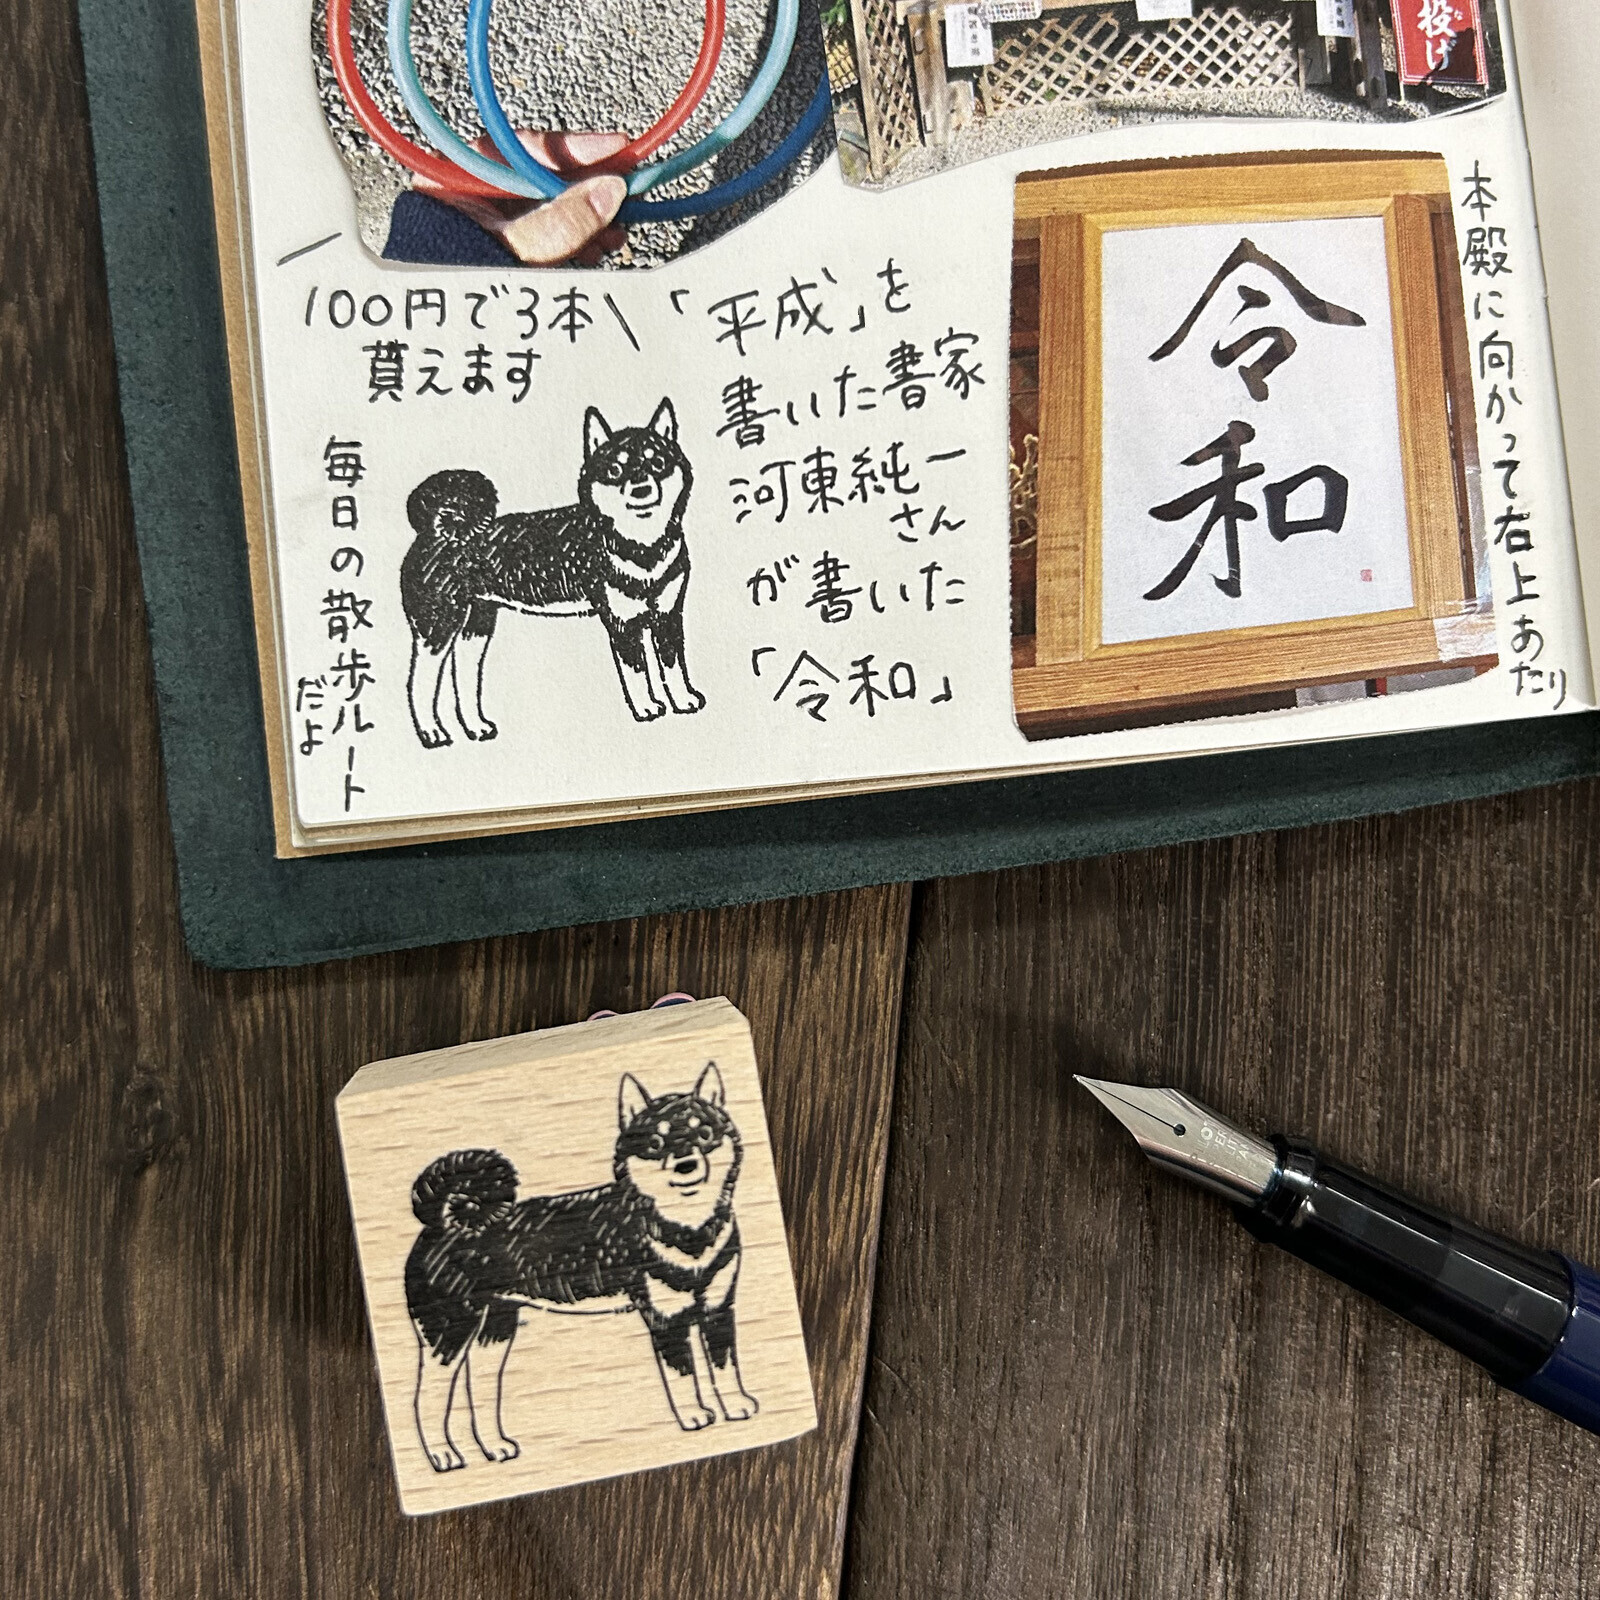 投げ
な
/100円で3本\
貰えます
毎日の散歩ルート
だよ
「平成」を
書いた書家
河東純一
さん
が書いた
「令和」
令和
本殿に向かって右上あたり